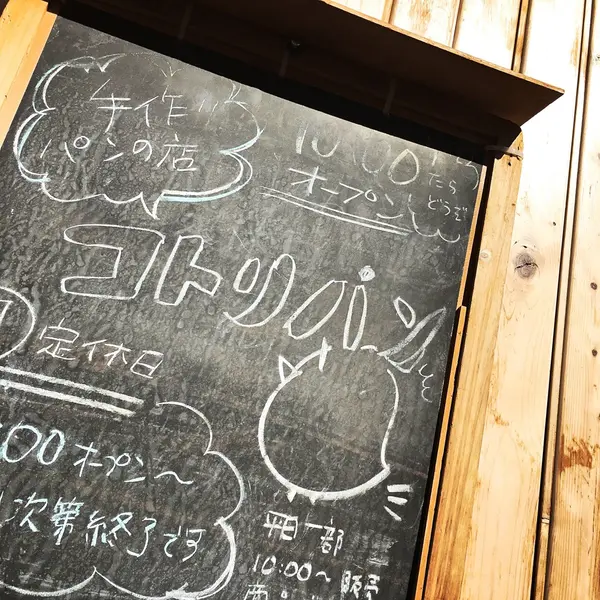 手作
パンの店
10:00
オープン
たら
どうぞ
コトリパン
定休日
:00 オープン〜
次第終了です
一部
10:00〜 販売